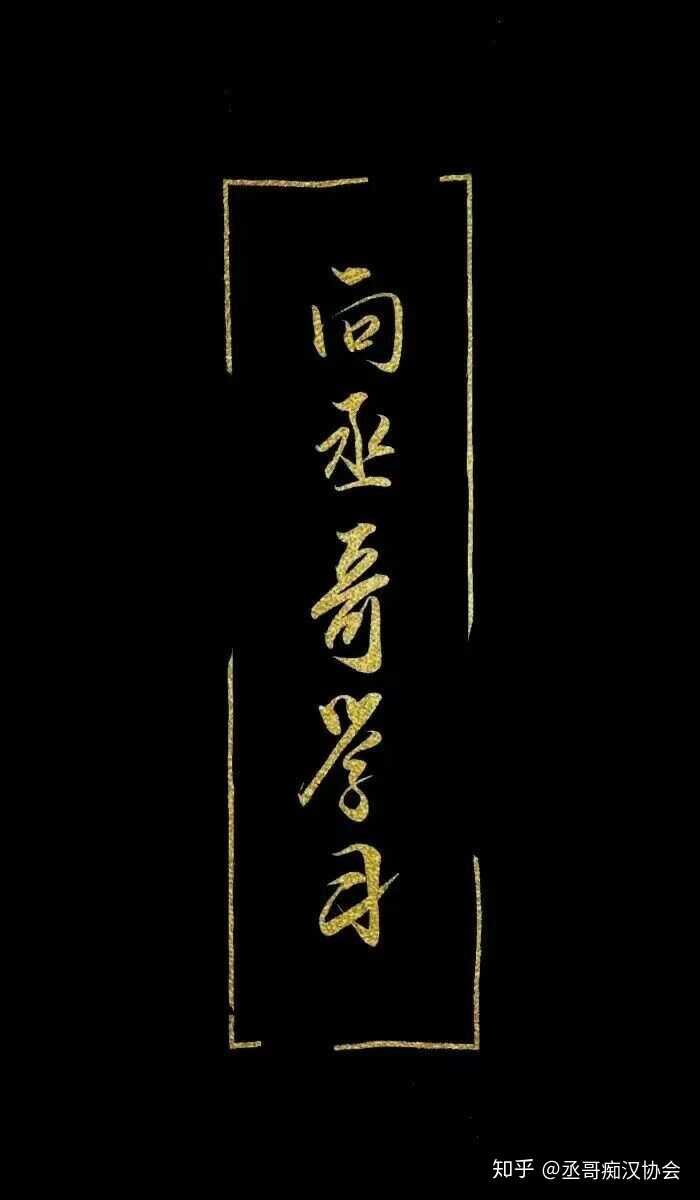 向丞哥学习
知乎 @丞哥痴汉协会